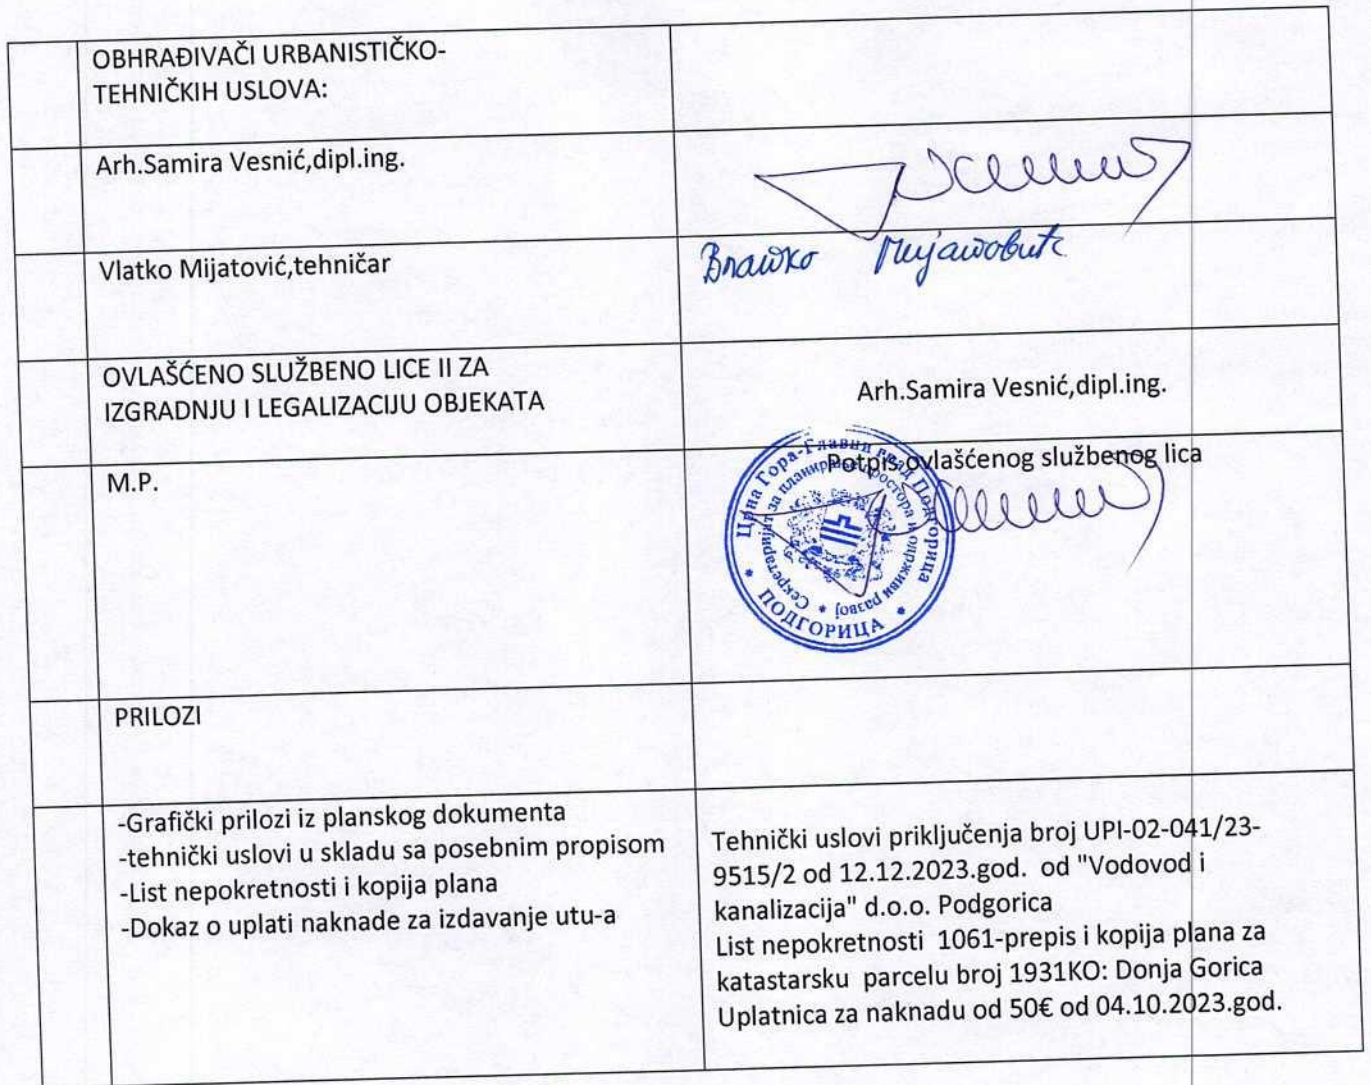 OBHRAĐIVAČI URBANISTIČKO-
TEHNIČKIH USLOVA:
Arh.Samira Vesnić,dipl.ing.
Vlatko Mijatović,tehničar
Влатко Мијатовић
OVLAŠĆENO SLUŽBENO LICE II ZA
IZGRADNJU I LEGALIZACIJU OBJEKATA
Arh.Samira Vesnić,dipl.ing.
M.P.
Potpis ovlašćenog službenog lica
Црна Гора-Главни град Подгорица
Секретаријат за планирање простора и одрживи развој
ПОДГОРИЦА
PRILOZI
-Grafički prilozi iz planskog dokumenta
-tehnički uslovi u skladu sa posebnim propisom
-List nepokretnosti i kopija plana
-Dokaz o uplati naknade za izdavanje utu-a
Tehnički uslovi priključenja broj UPI-02-041/23-
9515/2 od 12.12.2023.god. od "Vodovod i
kanalizacija" d.o.o. Podgorica
List nepokretnosti 1061-prepis i kopija plana za
katastarsku parcelu broj 1931KO: Donja Gorica
Uplatnica za naknadu od 50€ od 04.10.2023.god.